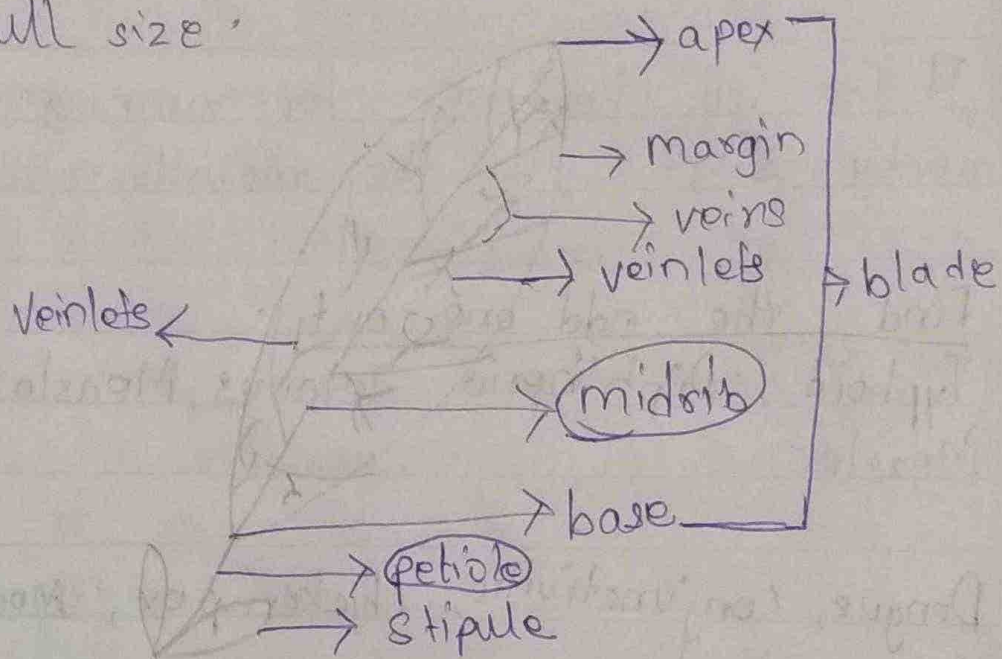 size.
apex
margin
veins
veinlets
blade
Veinlets
midrib
base
petiole
stipule